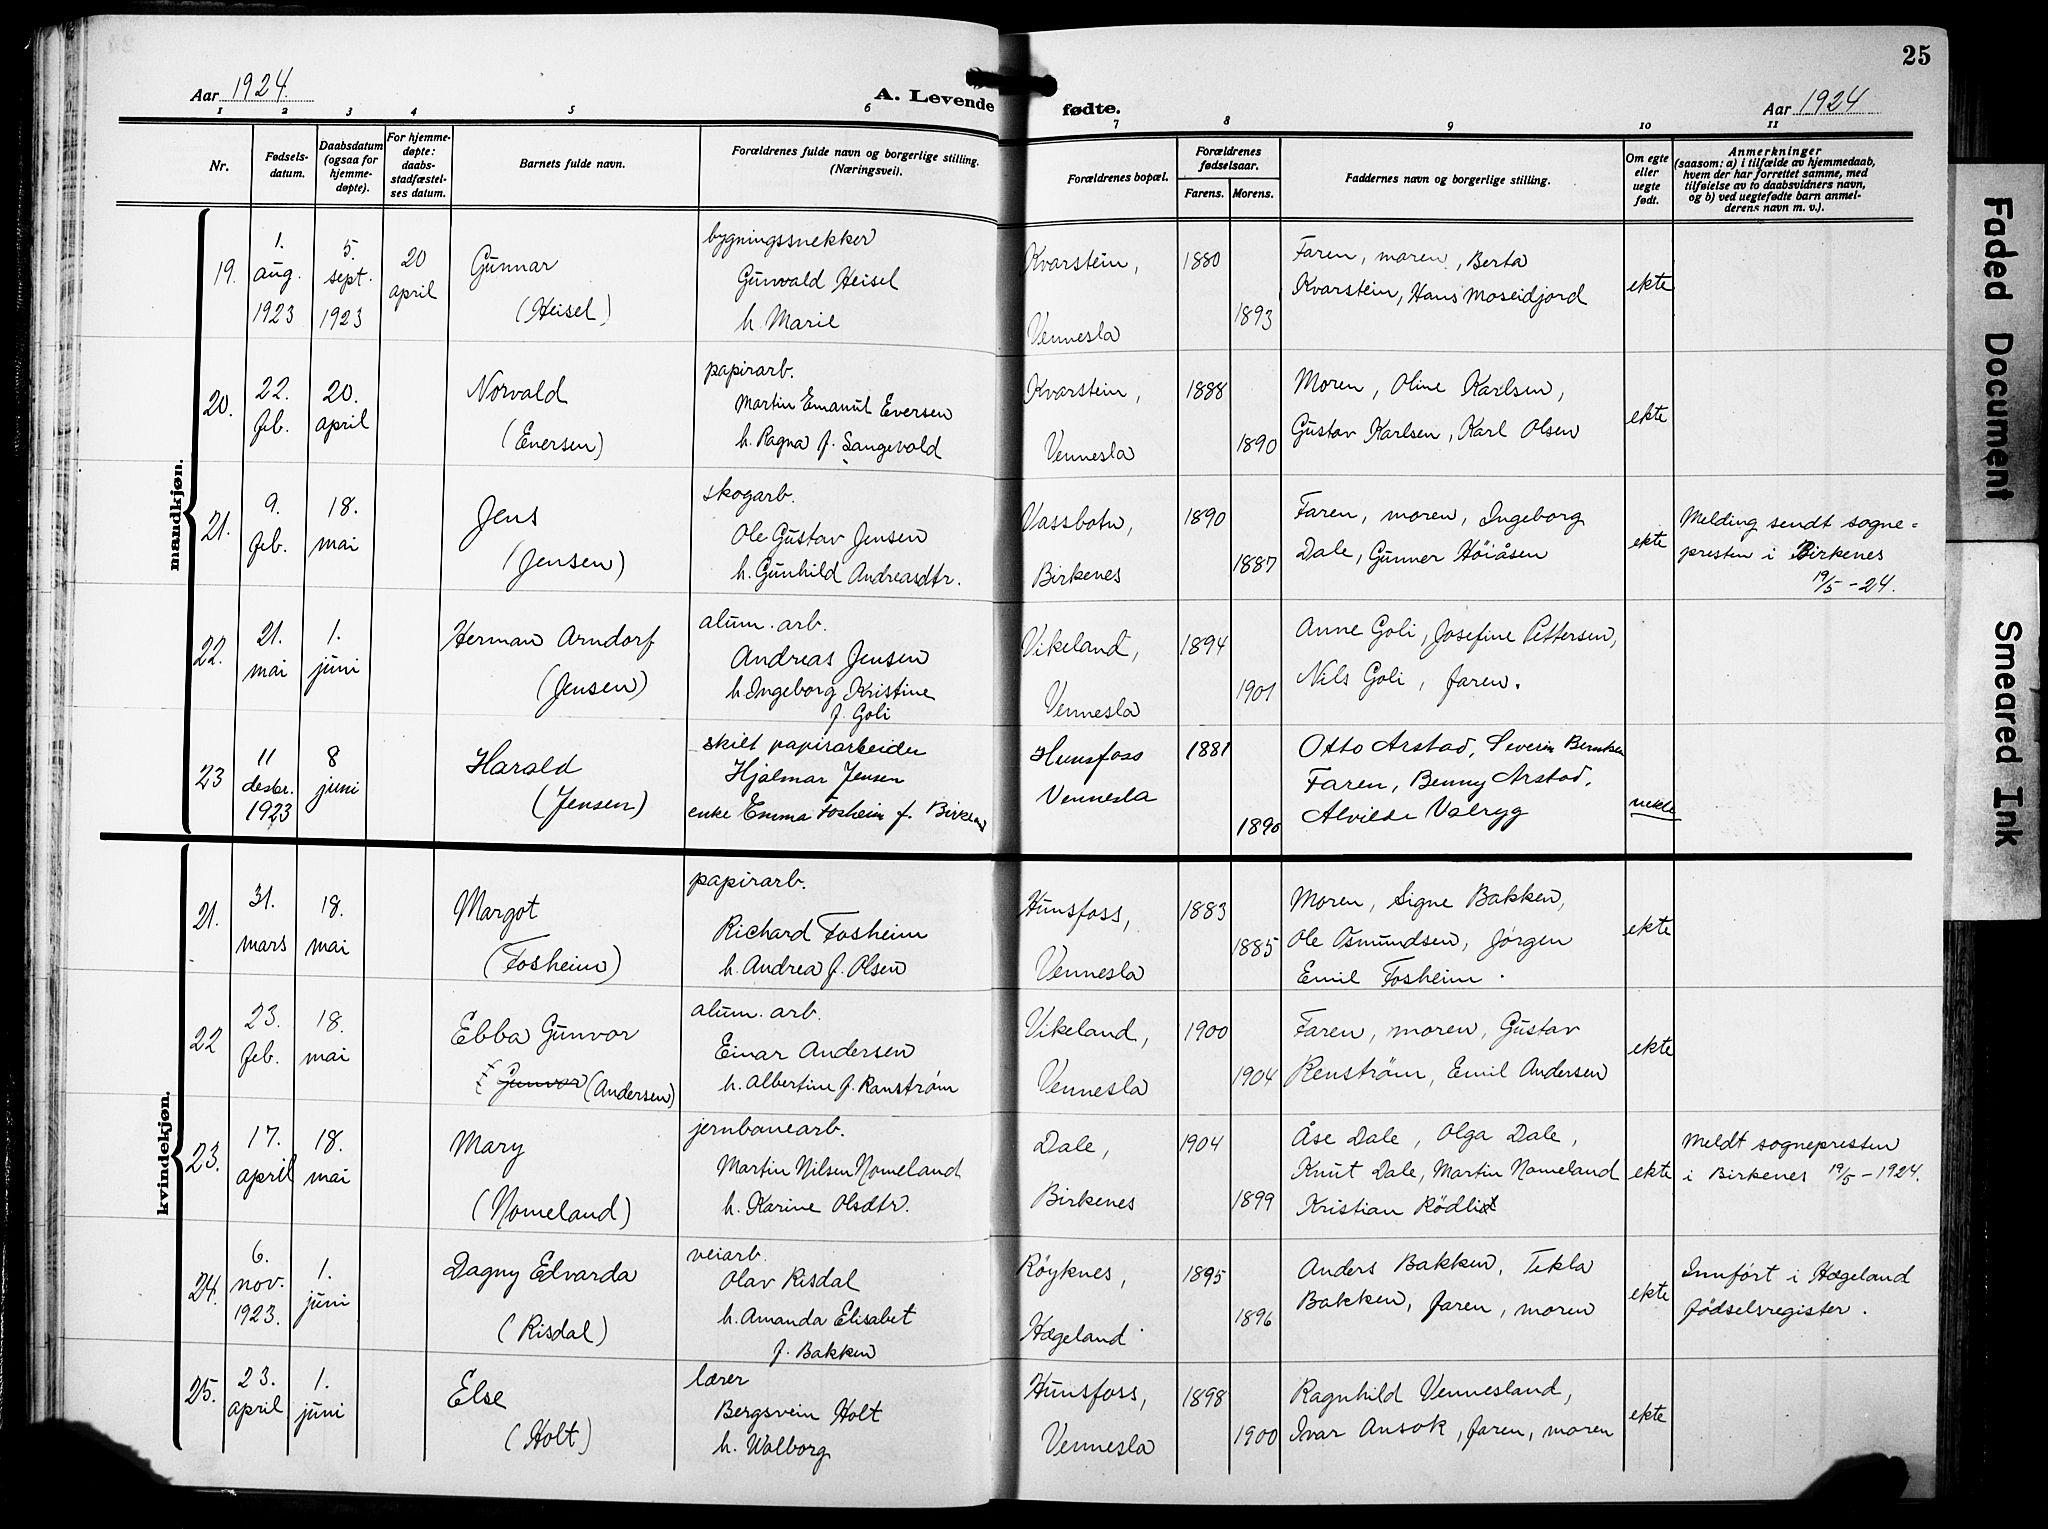 25
Aar 1924.
A. Levende fødte.
Aar 1924
1 2 3 4 5 6 7 8 9 10 11
Nr.
Fødsels-
datum.
Daabsdatum
(ogsaa for
hjemme-
døpte).
For hjemme-
døpte:
daabs-
stadfæstel-
ses datum.
Barnets fulde navn.
Forældrenes fulde navn og borgerlige stilling.
(Næringsvei).
Forældrenes bopæl.
Forældrenes
fødselsaar.
Farens. Morens.
Faddernes navn og borgerlige stilling.
Om egte
eller
uegte
født.
Anmerkninger
(saasom: a) i tilfælde av hjemmedaab,
hvem der har forrettet samme, med
tilføielse av to daabsvidners navn,
og b) ved uegtefødte barn anmel-
derens navn m. v.).
mandkjøn.
19.
1.
aug.
1923
5.
sept.
1923
20
april
Gunnar
(Heisel)
bygningssnekker
Gunvald Heisel
h. Marie
Kvarstein,
Vennesla
1880
1893
Faren, moren, Berta
Kvarstein, Hans Moseidjord
ekte
20.
22.
feb.
20.
april
Norvald
(Eversen)
papirarb.
Martin Emanuel Eversen
h. Ragna f. Sangevald
Kvarstein,
Vennesla
1888
1890
Moren, Oline Karlsen,
Gustav Karlsen, Karl Olsen
ekte
21.
9.
feb.
18.
mai
Jens
(Jensen)
skogarb.
Ole Gustav Jensen
h. Gunhild Andreasdtr.
Vassbotn,
Birkenes
1890
1887
Faren, moren, Ingeborg
Dale, Gunner Höiåsen
ekte
Melding sendt sogne=
presten i Birkenes
19/5 -24.
22.
21.
mai
1.
juni
Herman Arndorf
(Jensen)
alum. arb.
Andreas Jensen
h. Ingeborg Kristine
f. Goli
Vikeland,
Vennesla
1894
1901
Anne Goli, Josefine Pettersen,
Nils Goli, faren.
23
11
desbr.
1923
8
juni
Harald
(Jensen)
skilt papirarbeider
Hjalmar Jensen
enke Emma Fosheim f.
Hunsfoss
Vennesla
1881
1890
Otto Arstad, Severin
Faren, Benny Arstad,
Alvilde Valryg
uekte
kvindekjøn.
21.
31.
mars
18.
mai
Margot
(Fosheim)
papirarb.
Richard Fosheim
h. Andrea f. Olsen
Hunsfoss,
Vennesla
1883
1885
Moren, Signe Bakken,
Ole Osmundsen, Jørgen
Emil Fosheim.
ekte
22
23.
feb.
18.
mai
Ebba Gunvor
Gunvor (Andersen)
alum. arb.
Einar Andersen
h. Albertine f. Ranstrøm
Vikeland,
Vennesla
1900
1904
Faren, moren, Gustav
Renstrøm, Emil Andersen
ekte
23.
17.
april
18.
mai
Mary
(Nomeland)
jernbanearb.
Martin Nilsen Nomeland
h. Karine Olsdtr.
Dale,
Birkenes
1904
1899
Åse Dale, Olga Dale,
Knut Dale, Martin Nomeland
Kristian Rödli
ekte
Meldt sognepresten
i Birkenes 19/5 -1924.
24.
6.
nov.
1923.
1.
juni
Dagny Edvarda
(Risdal)
veiarb.
Olav Risdal
h. Amanda Elisabet
f. Bakken
Røyknes,
Hægeland
1895
1896
Anders Bakken, Tekla
Bakken, faren, moren
ekte
Innført i Hægeland
fødselsregister.
25.
23.
april
1.
juni
Else
(Holt)
lærer
Bergsvein Holt
h. Walborg
Hunsfoss,
Vennesla
1898
1900
Ragnhild Vennesland,
Ivar Ansok, faren, moren
ekte
Faded Document
Smeared Ink